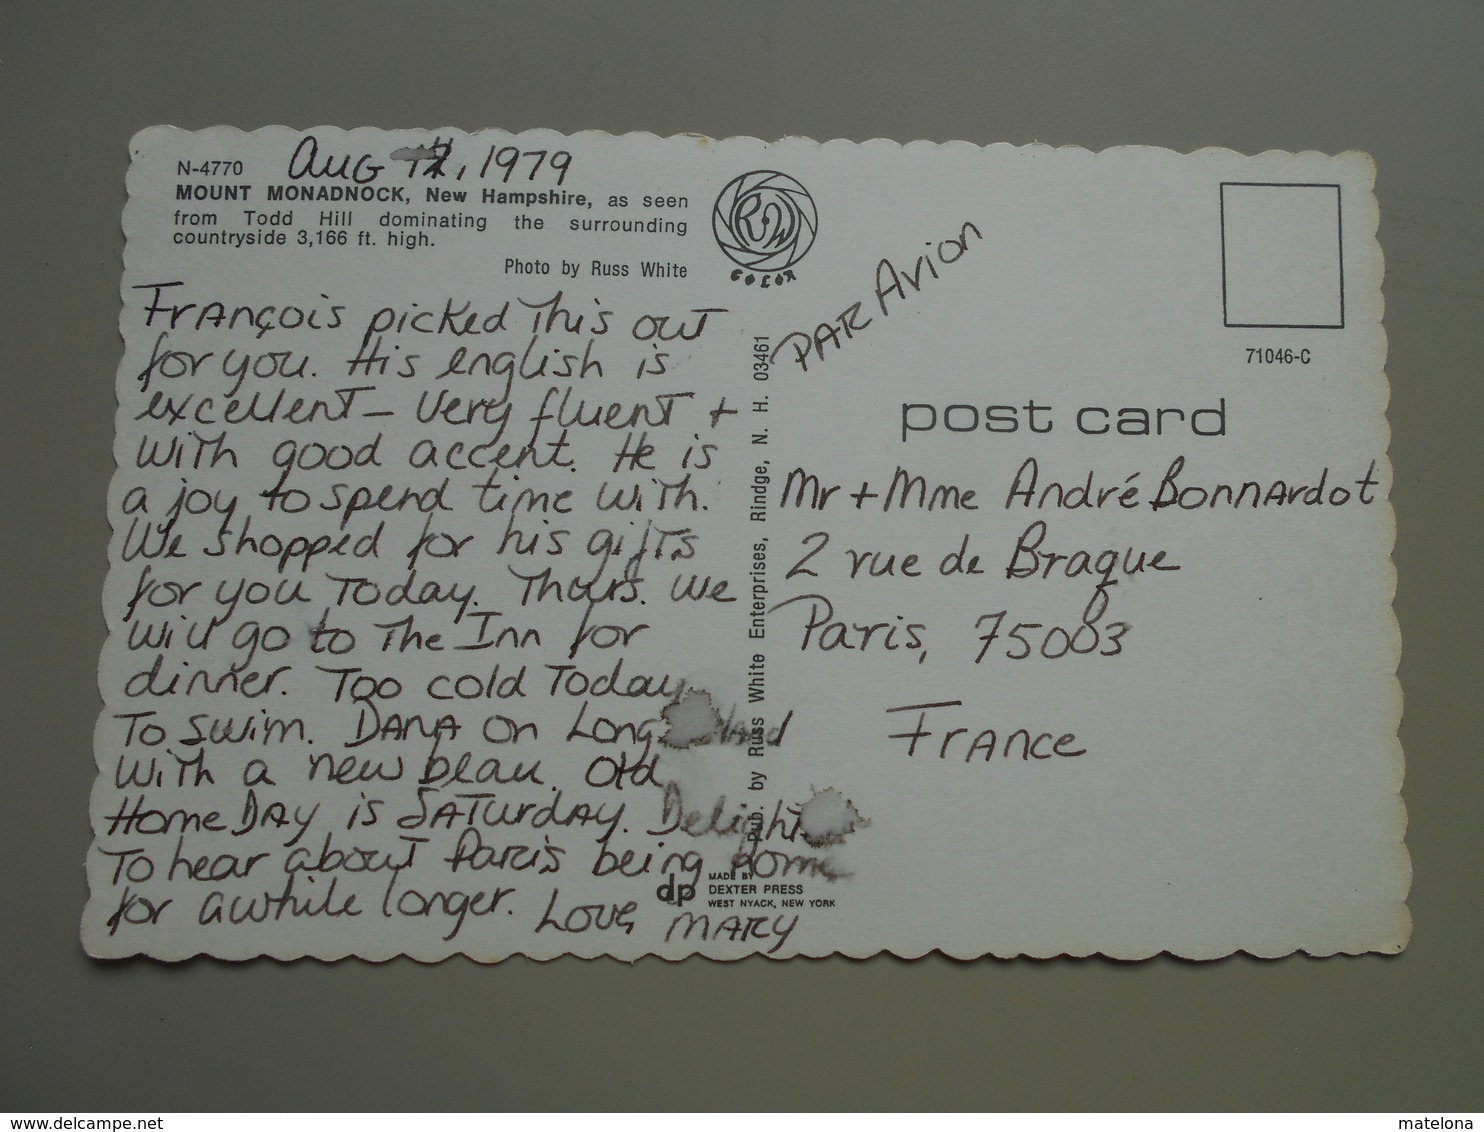 N-4770
Aug , 1979
MOUNT MONADNOCK, New Hampshire, as seen
from Todd Hill dominating the surrounding
countryside 3,166 ft. high.
Photo by Russ White
R W
COLOR
François picked this out
for you. His english is
excellent – very fluent +
with good accent. He is
a joy to spend time with.
We shopped for his gifts
for you today. Thurs. we
will go to the Inn for
dinner. Too cold today
to swim. Dana on Long
with a new beau. Old
Home Day is Saturday.
to hear about Paris being home
for awhile longer. Love, Mary
Pub. by Russ White Enterprises, Rindge, N. H. 03461
dp
MADE BY
DEXTER PRESS
WEST NYACK, NEW YORK
PAR Avion
71046-C
post card
Mr + Mme André Bonnardot
2 rue de Braque
Paris, 75003
France
www.delcampe.net
matelona